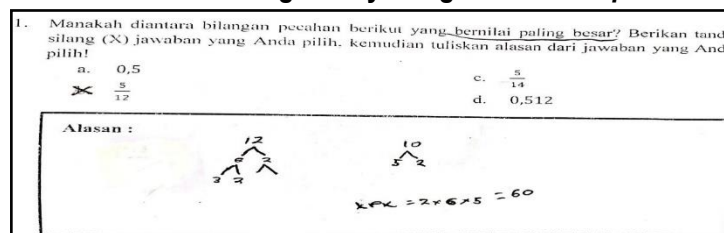 1. Manakah diantara bilangan pecahan berikut yang bernilai paling besar? Berikan tand
silang (X) jawaban yang Anda pilih, kemudian tuliskan alasan dari jawaban yang And
pilih!
a. 0,5
5/12
c. 5/14
d. 0,512
Alasan :
12
6 2
3 2
10
5 2
KPK = 2 x 6 x 5 = 60